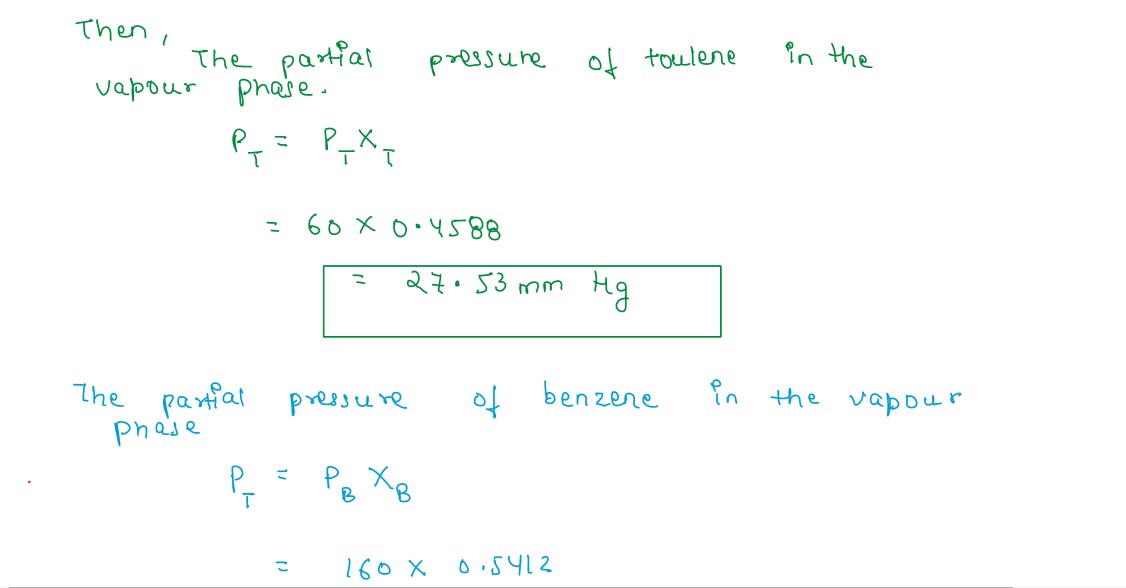 Then,
The partial pressure of toulene in the
vapour phase.
P_T = P_T X_T
= 60 × 0.4588
= 27.53 mm Hg
The partial pressure of benzene in the vapour
phase
P_T = P_B X_B
= 160 × 0.5412